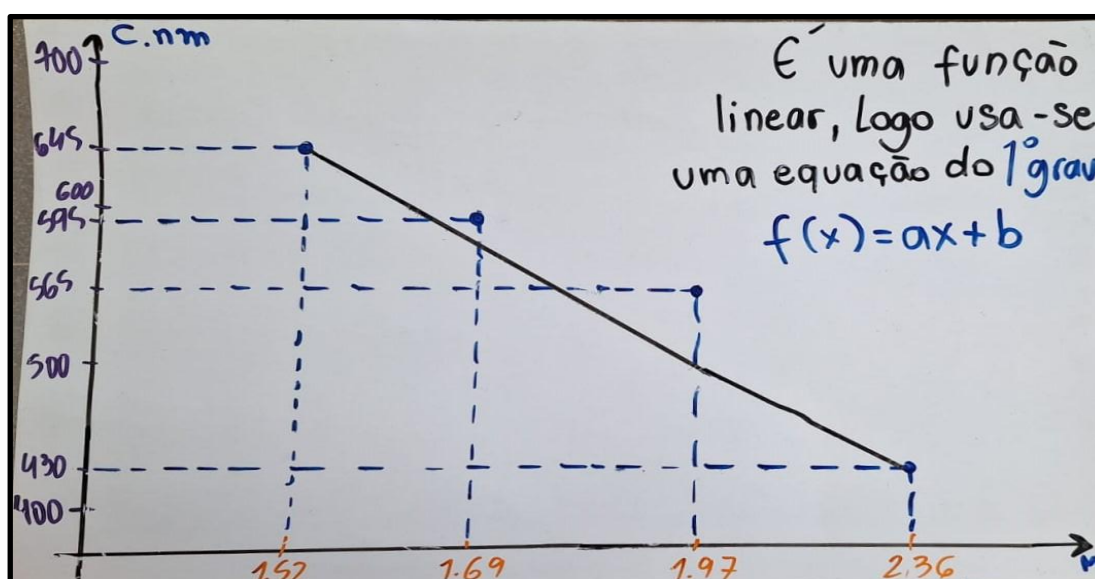 C.nm
É uma função
linear, Logo usa-se
uma equação do 1º grau
f(x)=ax+b
700
645
600
595
565
500
430
400
1.52
1.69
1.97
2.36